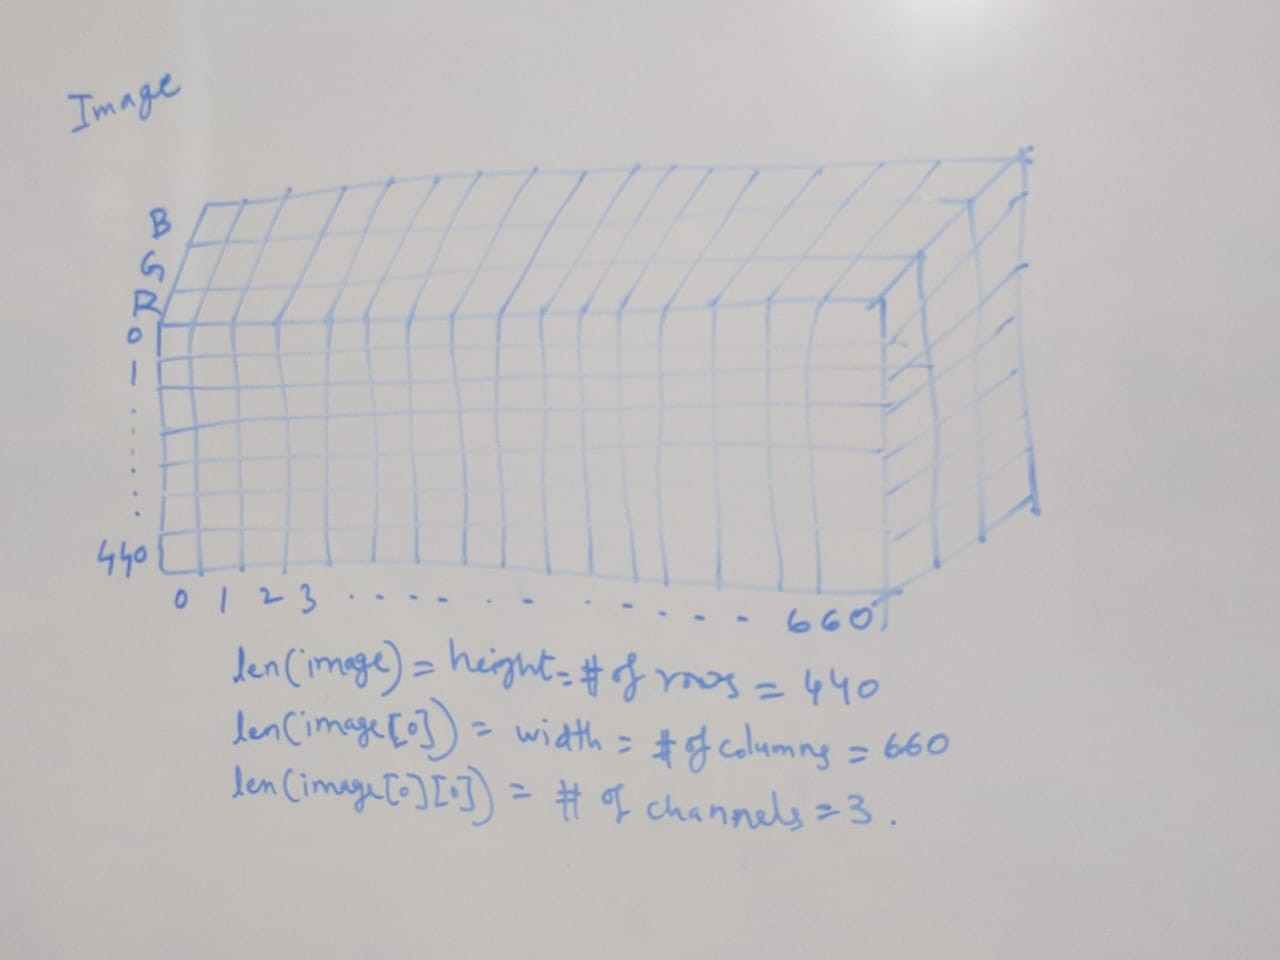 Image
B
G
R
0
1
440
0 1 2 3 . . . . . . . . . . . 660
len(image) = height = # of rows = 440
len(image[0]) = width = # of columns = 660
len(image[0][0]) = # of channels = 3.